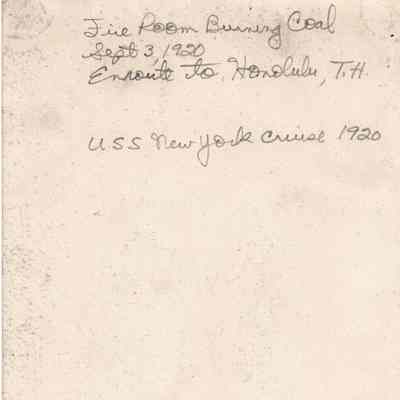 Fire Room Burning Coal
Sept 3, 1920
Enroute to Honolulu, T.H.
USS New York Cruise 1920